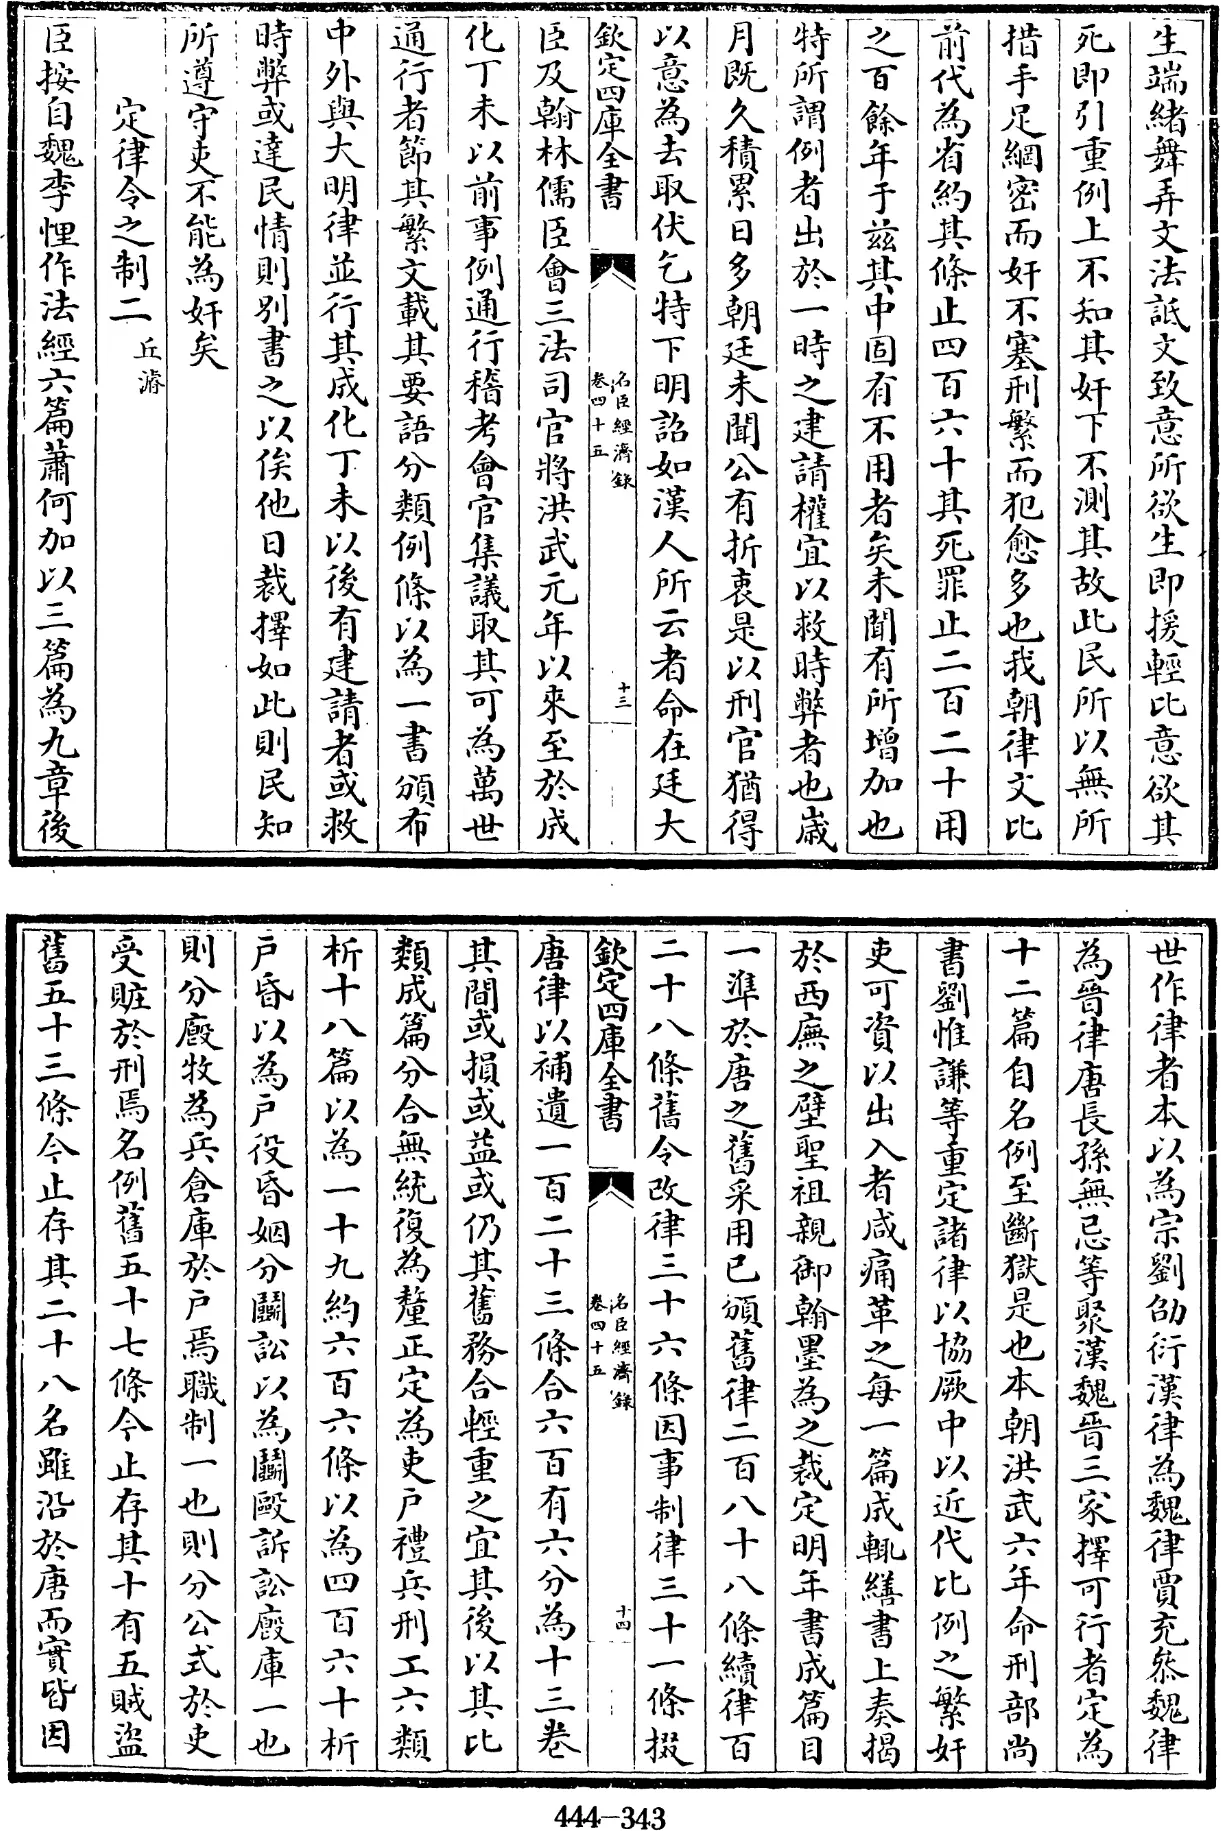 生端緒舞弄文法詆文致意所欲生即援輕比意欲其
死即引重例上不知其奸下不測其故此民所以無所
措手足綱密而奸不塞刑繁而犯愈多也我朝律文比
前代為省約其條止四百六十其死罪止二百二十用
之百餘年于兹其中固有不用者矣未聞有所增加也
特所謂例者出於一時之建請權宜以救時弊者也歳
月既久積累日多朝廷未聞公有折衷是以刑官猶得
以意為去取伏乞特下明詔如漢人所云者命在廷大
欽定四庫全書
名臣經濟錄
卷四十五
十三
臣及翰林儒臣會三法司官將洪武元年以來至於成
化丁未以前事例通行稽考會官集議取其可為萬世
通行者節其繁文載其要語分類例條以為一書頒布
中外與大明律並行其成化丁未以後有建請者或救
時弊或達民情則別書之以俟他日裁擇如此則民知
所遵守吏不能為奸矣
定律令之制二 丘濬
臣按自魏李悝作法經六篇蕭何加以三篇為九章後
世作律者本以為宗劉劭衍漢律為魏律賈充叅魏律
為晉律唐長孫無忌等聚漢魏晉三家擇可行者定為
十二篇自名例至斷獄是也本朝洪武六年命刑部尚
書劉惟謙等重定諸律以協厥中以近代比例之繁奸
吏可資以出入者咸痛革之每一篇成輒繕書上奏揭
於西廡之壁聖祖親御翰墨為之裁定明年書成篇目
一準於唐之舊采用已頒舊律二百八十八條續律百
二十八條舊令改律三十六條因事制律三十一條掇
欽定四庫全書
名臣經濟錄
卷四十五
十四
唐律以補遺一百二十三條合六百有六分為十三卷
其間或損或益或仍其舊務合輕重之宜其後以其比
類成篇分合無統復為釐正定為吏戶禮兵刑工六類
析十八篇以為一十九約六百六條以為四百六十析
戶昏以為戶役昏姻分鬭訟以為鬭毆訴訟廐庫一也
則分廐牧為兵倉庫於戶焉職制一也則分公式於吏
受贓於刑焉名例舊五十七條今止存其十有五賊盜
舊五十三條今止存其二十八名雖沿於唐而實皆因
444-343